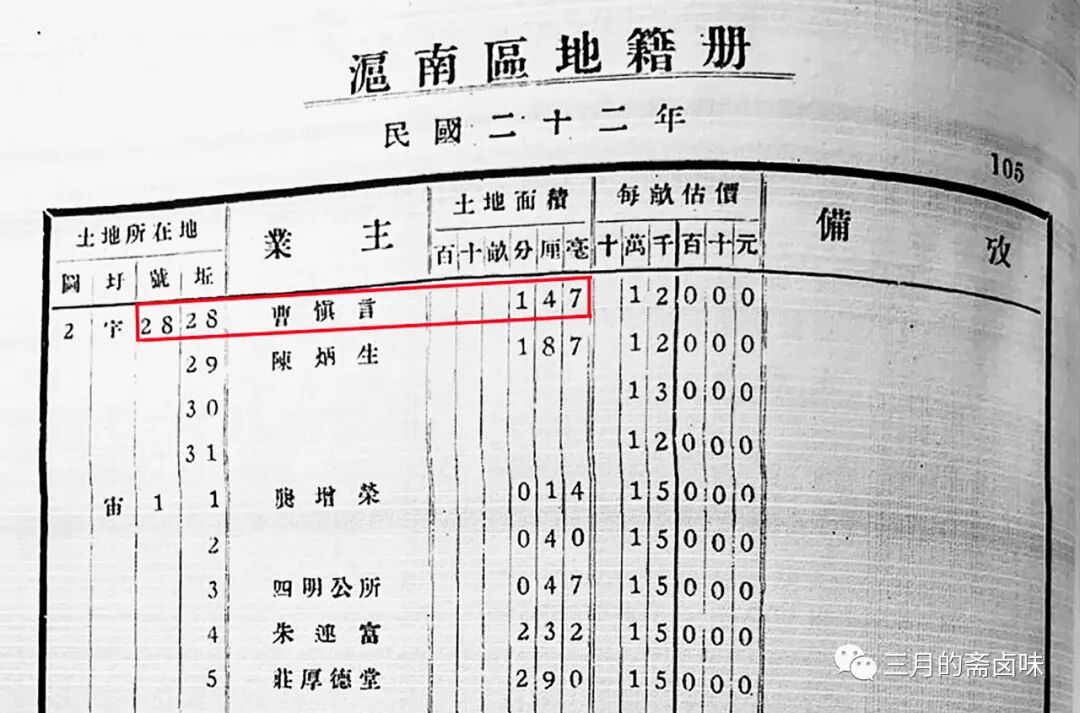 滬南區地籍册
民國二十二年
105
土地所在地 業主 土地面積 每畝估價 備攷
圖 圩 號 坵 百十畝分厘毫 十萬千百十元
2 宇 28 28 曹愼言 147 12000
29 陳炳生 187 12000
30 13000
31 12000
宙 1 1 龔增榮 014 15000
2 040 15000
3 四明公所 047 15000
4 朱連富 232 15000
5 莊厚德堂 290 15000
三月的斋卤味